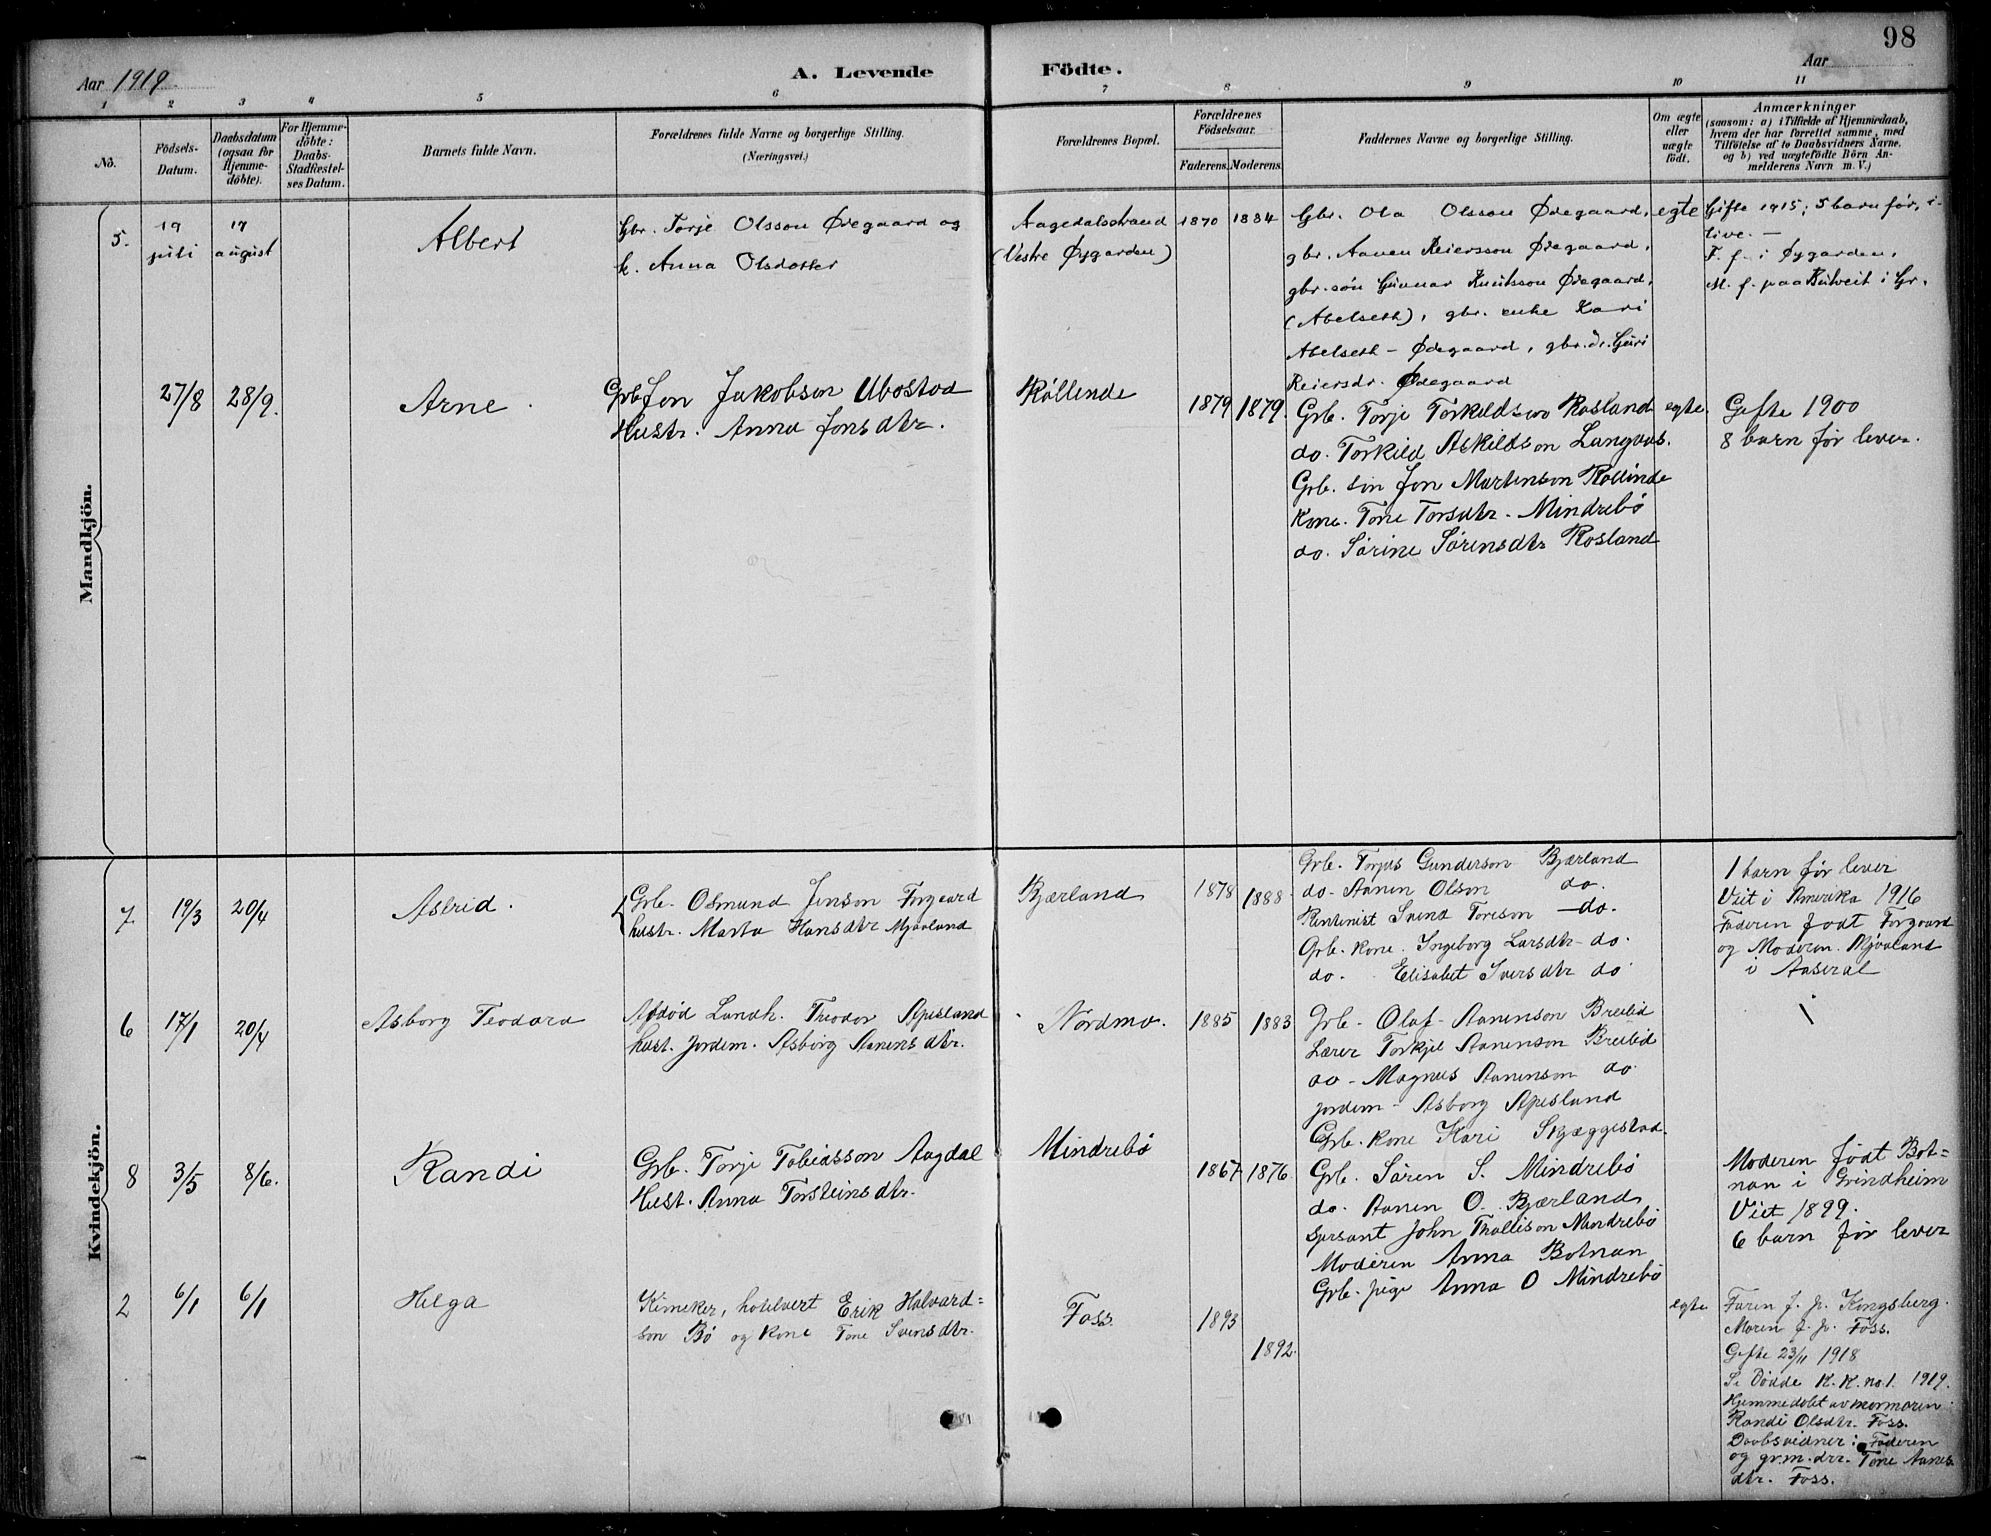 98
Aar 1919.
A. Levende Födte.
Aar
1 2 3 4 5 6 7 8 9 10 11
No.
Födsels-Datum.
Daabsdatum (ogsaa for Hjemme-döbte).
For Hjemme-döbte: Daabs-Stadfæstel-ses Datum.
Barnets fulde Navn.
Forældrenes fulde Navne og borgerlige Stilling. (Næringsvei.)
Forældrenes Bopæl.
Forældrenes Födselsaar.
Faderens. Moderens.
Faddernes Navne og borgerlige Stilling.
Om ægte eller uægte födt.
Anmærkninger
(saasom: a) i Tilfælde af Hjemmedaab,
hvem der har forrettet samme, med
Tilföielse af to Daabsvidners Navne,
og b) ved uægtefödte Börn An-
melderens Navn m. V.)
Mandkjön.
5. 19 juli 17 august
Albert
Gbr. Torje Olsson Ødegaard og
k. Anna Olsdotter
Aagedalsstrand
(Vestre Øygarden)
1870 1884
Gbr. Ola Olsson Ødegaard,
gbr. Aanen Reiersson Ødegaard,
gbr. søn Gunnar Knutsson Ødegaard,
(Abelseth), gbr. enke Kari
Abelseth - Ødegaard, gbr. dr. Guri
Reiersdr. Ødegaard
egte
Gifte 1915; 5 barn før, i
live. —
F. f. i Øygarden,
M. f. paa Rutveit i Gr.
27/8 28/9.
Arne.
Grb. Jon Jakobson Ubostad
Hustr. Anna Jonsdtr.
Røllende
1879 1879.
Grb. Torje Torkildson Rosland
do. Torkild Askildson Langvas.
Grb. søn Jon Martenson Røllende
Kone. Tone Torsdtr. Mindrebø
do. Sørine Sørensdtr Rosland
egte.
Gifte 1900
8 barn før lever.
Kvindekjön.
7 19/3 20/4
Astrid.
Grb. Osmund Jenson Forgaard
hustr. Marta Hansdtr Mjaaland
Bjærland
1878 1888
Grb. Torjus Gunderson Bjærland
do. Aanen Olson do.
Rentenist Svend Toreson —do.
Grb. kone. Ingeborg Larsdtr do.
do. Elisabet Iversdtr do
1 barn før lever
Viet i Amerika 1916
Faderen født Forgaard
og Moderen. Mjaaland
i Aaseral
6 17/1 20/4
Asborg Teodora
Afdød Landh. Theodor Apesland
hust. Jordem. Asborg Aanensdtr.
Nordmo.
1885 1883
Grb. Olaf Aanenson Breilid
Lærer Torkjel Aanenson Breilid
do - Magnus Aanenson do
jordem - Asborg Apesland
Grb. kone Kari Skjæggestad.
8 3/5 8/6.
Randi
Grb. Torje Tobiasson Aagdal
Hust. Anna Torsteinsdtr.
Mindrebø
1867 1876
Grb. Søren S. Mindrebø
do. Aanen O. Bjærland
Spesant John Thallison Mindrebø
Moderen Anna Botnan
Grb. pige Anna O Mindrebø
Moderen født Bot=
nan i Grindheim
Viet 1899.
6 barn før lever
2 6/1 6/1
Helga
Kemeker, hotelvert Erik Halvard=
son Bø og kone Tone Svensdtr.
Foss.
1893 1892.
egte
Faren f. p. Kongsberg.
Moren f. p. Foss.
Gifte 23/11 1918
Se Dødde K.K. no. 1. 1919.
Hjemmedøbt av mormoren
Randi Olsdtr. Foss.
Daabsvidner: Faderen
og grm. dtr. Tone Aanes
dtr. Foss.